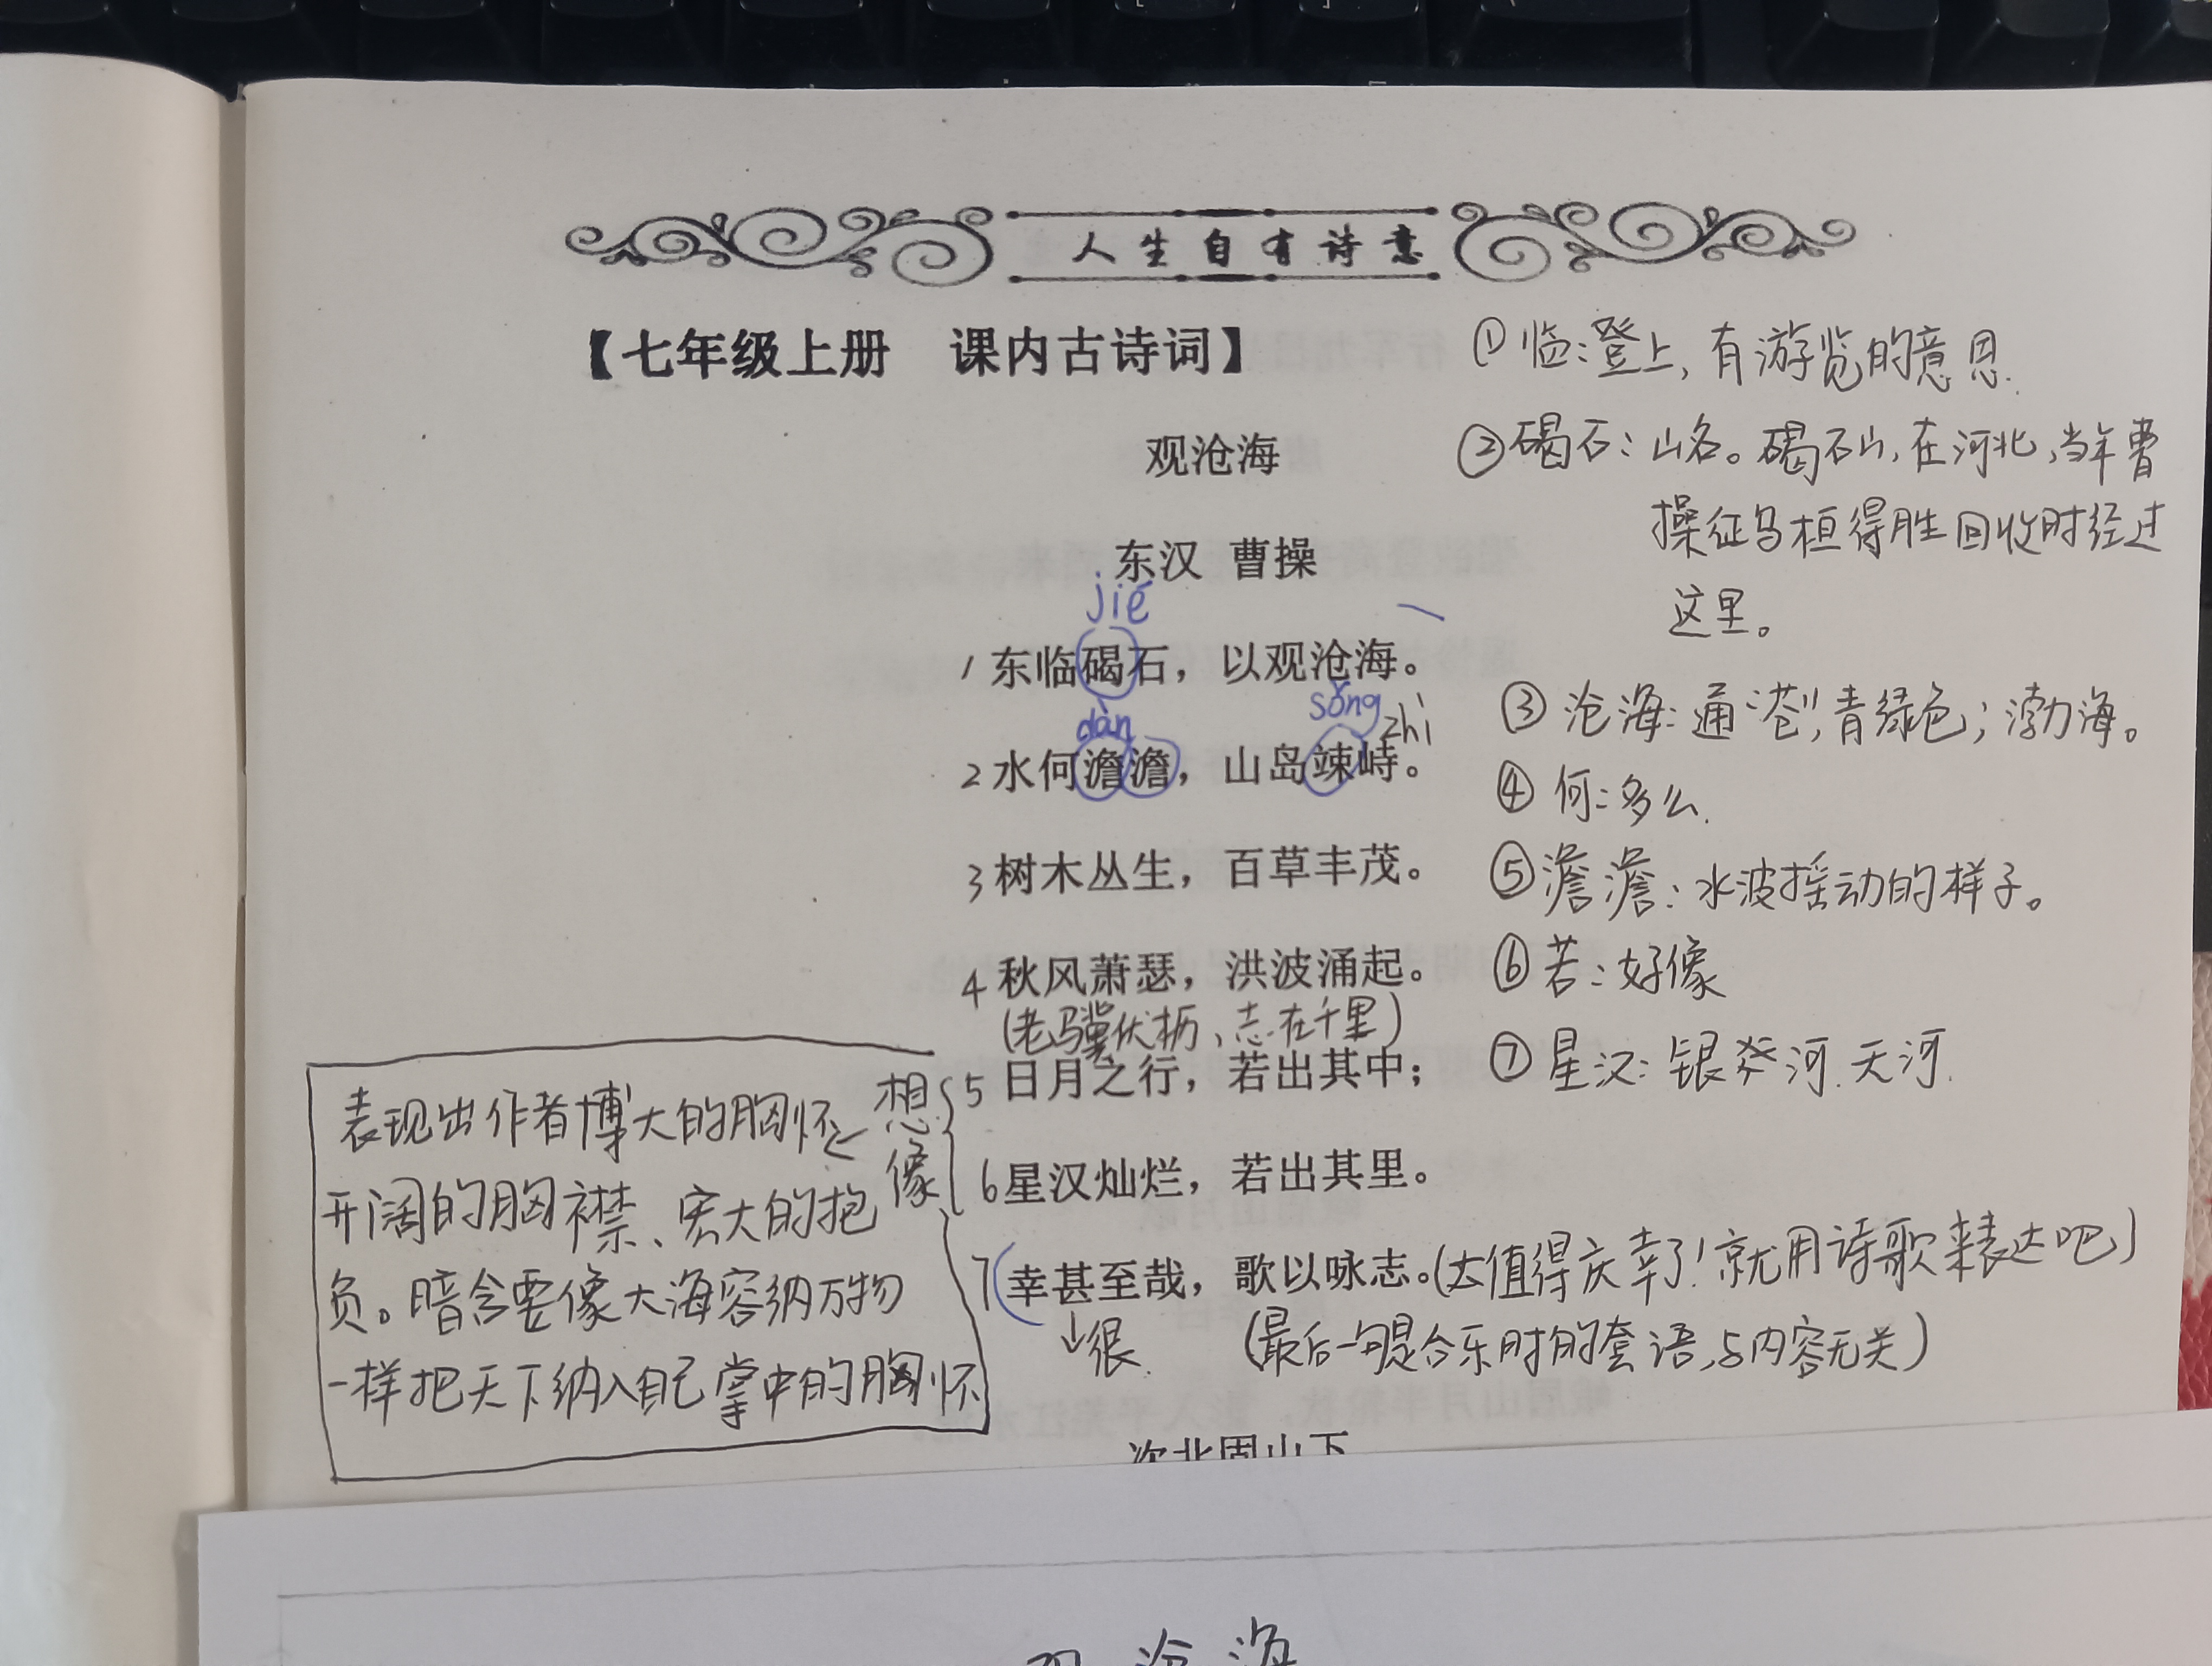 人生自有诗意
【七年级上册 课内古诗词】
观沧海
东汉 曹操
jié
1 东临碣石，以观沧海。
dàn sǒng zhì
2 水何澹澹，山岛竦峙。
3 树木丛生，百草丰茂。
4 秋风萧瑟，洪波涌起。
(老骥伏枥、志在千里)
5 日月之行，若出其中；
6 星汉灿烂，若出其里。
7 幸甚至哉，歌以咏志。(太值得庆幸了！就用诗歌来表达吧)
↓很 (最后一句是合乐时的套语，与内容无关)
想像
表现出作者博大的胸怀
开阔的胸襟、宏大的抱
负。暗含要像大海容纳万物
一样把天下纳入自己掌中的胸怀
①临：登上，有游览的意思.
②碣石：山名。碣石山，在河北，当年曹
操征乌桓得胜回收时经过
这里。
③沧海：通“苍”，青绿色；渤海。
④何：多么.
⑤澹澹：水波摇动的样子。
⑥若：好像
⑦星汉：银河.天河.
次北固山下
观沧海